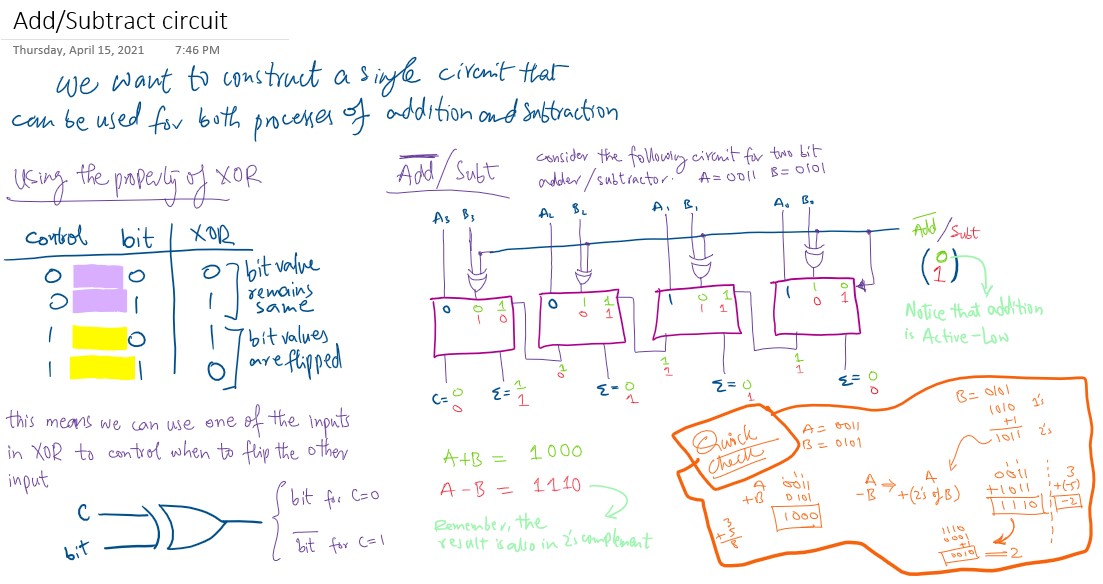 Add/Subtract circuit
Thursday, April 15, 2021 7:46 PM
We want to construct a single circuit that
can be used for both processes of addition and subtraction
Using the property of XOR
control bit XOR
0 0 0
0 1 1
1 0 1
1 1 0
bit value
remains
same
bit values
are flipped
this means we can use one of the inputs
in XOR to control when to flip the other
input
C
bit
bit for C=0
b̅i̅t̅ for C=1
A̅d̅d̅/Subt
consider the following circuit for two bit
adder/subtractor. A=0011 B=0101
A₃ B₃ A₂ B₂ A₁ B₁ A₀ B₀
A̅d̅d̅/Subt
(0
1)
Notice that addition
is Active-Low
0 0 1 0 1 1 1 0 1 1 1 0
1 0 0 1 1 1 0 1
1 1 1
0 1 1
C=0 Σ=1 Σ=0 Σ=0 Σ=0
0 1 1 1 0
A+B = 1000
A-B = 1110
Remember, the
result is also in 2's complement
Quick
check
A = 0011
B = 0101
A 0011
+B 0101
1000
3
+5
8
B = 0101
1010 1's
+1
1011 2's
A
-B
A
+(2's of B)
0011
+1011
1110
3
+(-5)
-2
1110
0001
+1
0010 = 2